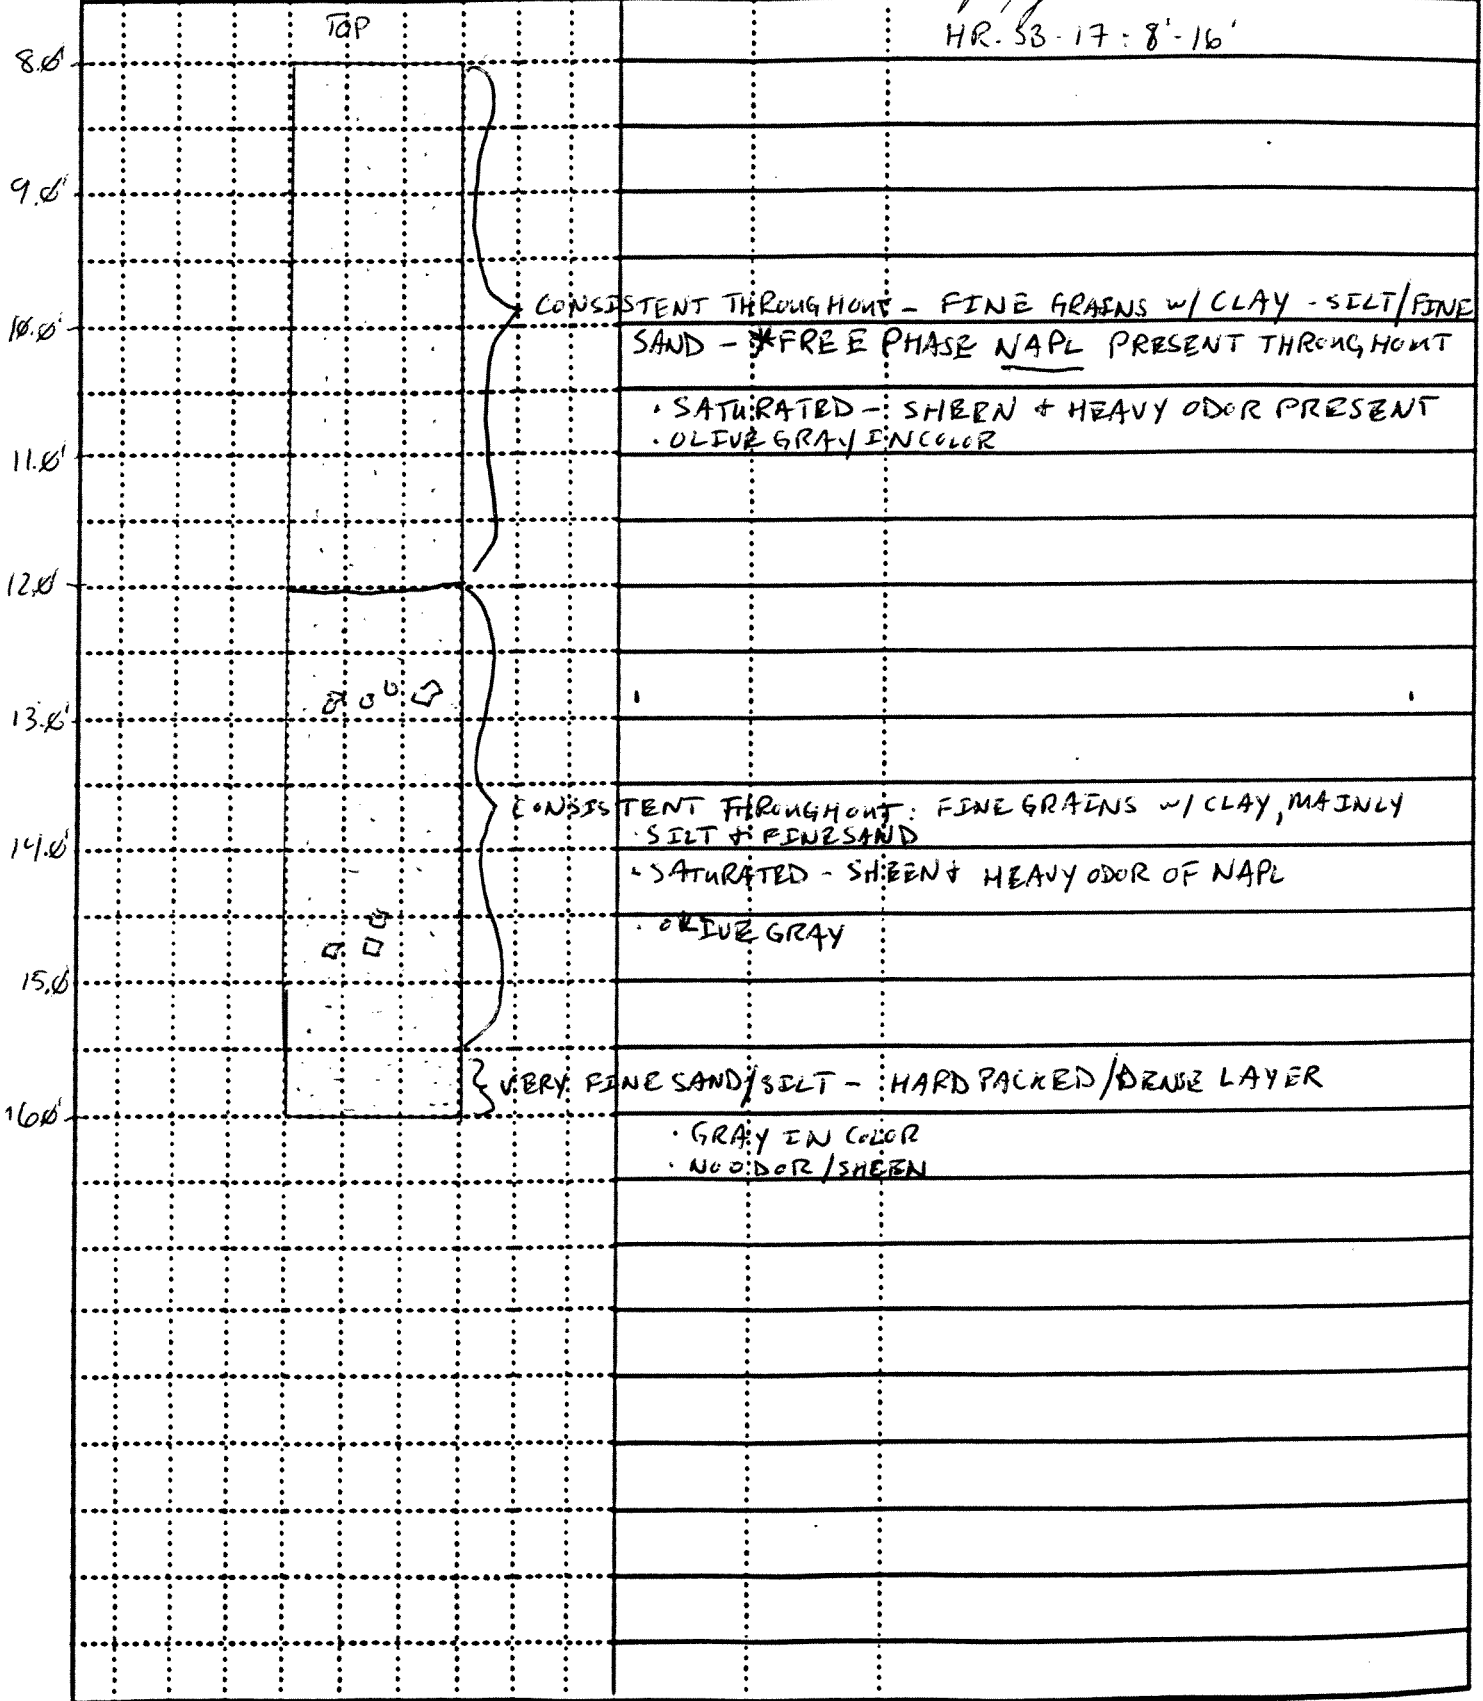 TOP
HR-SB-17: 8'-16'
8.0'
9.0'
CONSISTENT THROUGHOUT - FINE GRAINS w/ CLAY - SILT/FINE
10.0'
SAND - *FREE PHASE NAPL PRESENT THROUGHOUT
· SATURATED - SHEEN + HEAVY ODOR PRESENT
· OLIVE GRAY IN COLOR
11.0'
12.0'
13.0'
CONSISTENT THROUGHOUT: FINE GRAINS w/ CLAY, MAINLY
· SILT + FINE SAND
14.0'
· SATURATED - SHEEN + HEAVY ODOR OF NAPL
· OLIVE GRAY
15.0
VERY FINE SAND/SILT - HARD PACKED/DENSE LAYER
16.0'
· GRAY IN COLOR
· NO ODOR/SHEEN